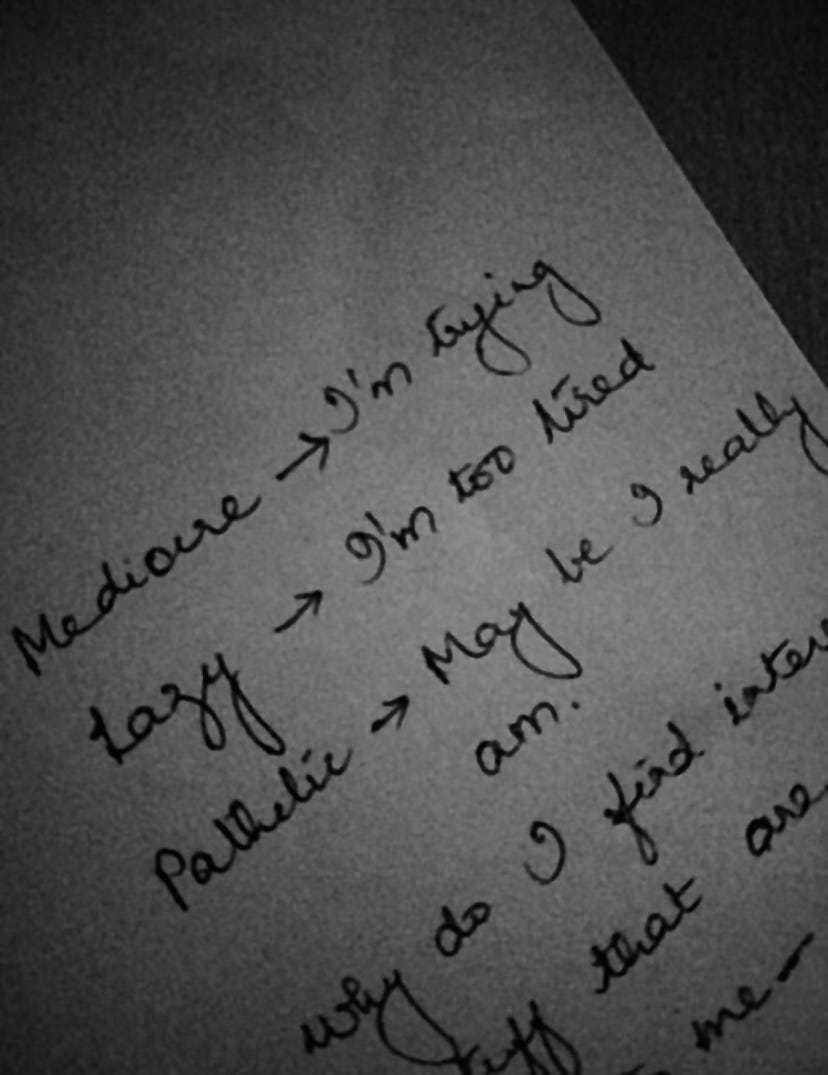 Mediocre → I'm trying
Lazy → I'm too tired
Pathetic → May be I really
am.
Why do I find
that are
me –